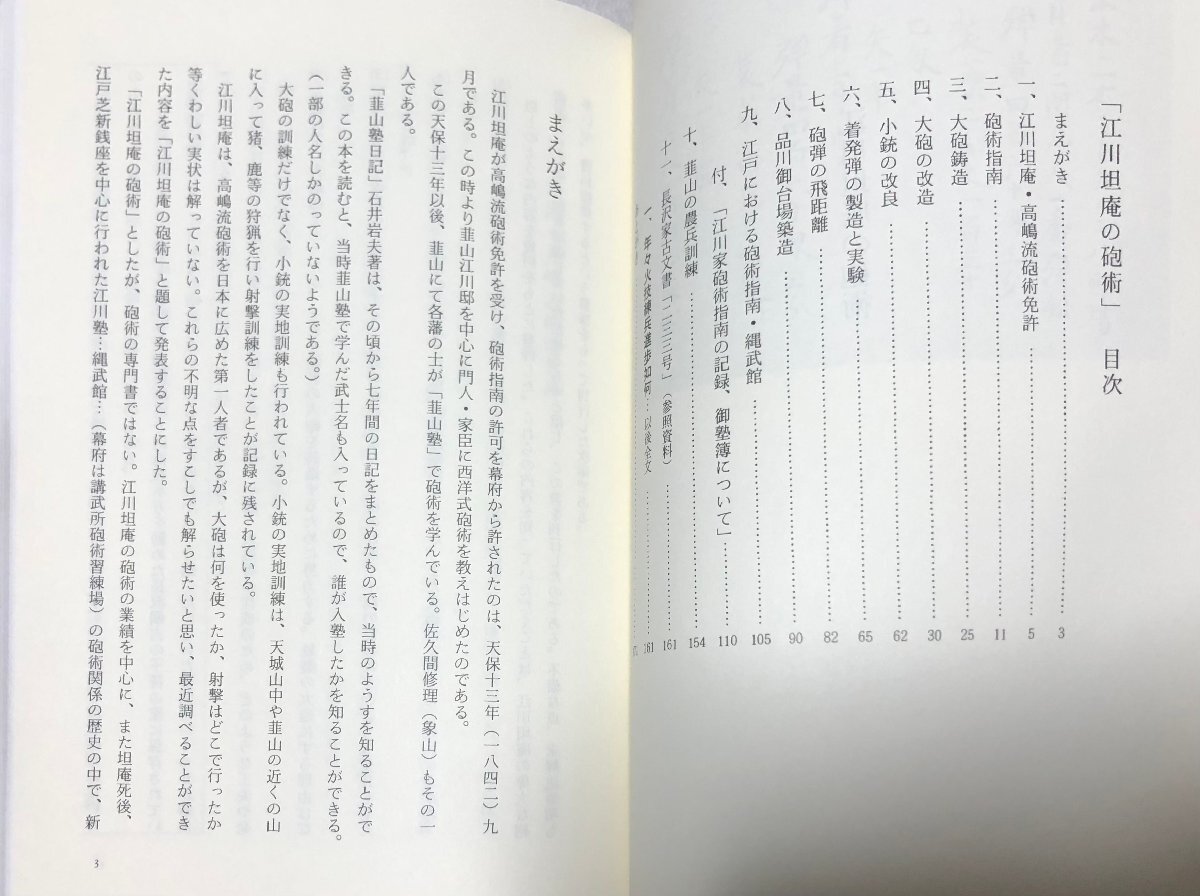 「江川坦庵の砲術」 目次
まえがき……3
一、江川坦庵・高嶋流砲術免許……5
二、砲術指南……11
三、大砲鋳造……25
四、大砲の改造……30
五、小銃の改良……62
六、着発弾の製造と実験……65
七、砲弾の飛距離……82
八、品川御台場築造……90
九、江戸における砲術指南・縄武館……105
付、「江川家砲術指南の記録、御塾簿について」……110
十、韮山の農兵訓練……154
十一、長沢家古文書「二三三号」(参照資料)……161
一、年々火技練兵進歩如何…以後全文……161
まえがき
江川坦庵が高嶋流砲術免許を受け、砲術指南の許可を幕府から許されたのは、天保十三年(一八四二)九
月である。この時より韮山江川邸を中心に門人・家臣に西洋式砲術を教えはじめたのである。
この天保十三年以後、韮山にて各藩の士が「韮山塾」で砲術を学んでいる。佐久間修理(象山)もその一
人である。
「韮山塾日記」石井岩夫著は、その頃から七年間の日記をまとめたもので、当時のようすを知ることがで
きる。この本を読むと、当時韮山塾で学んだ武士名も入っているので、誰が入塾したかを知ることができる。
(一部の人名しかのっていないようである。)
大砲の訓練だけでなく、小銃の実地訓練も行われている。小銃の実地訓練は、天城山中や韮山の近くの山
に入って猪、鹿等の狩猟を行い射撃訓練をしたことが記録に残されている。
江川坦庵は、高嶋流砲術を日本に広めた第一人者であるが、大砲は何を使ったか、射撃はどこで行ったか
等くわしい実状は解っていない。これらの不明な点をすこしでも解らせたいと思い、最近調べることができ
た内容を「江川坦庵の砲術」と題して発表することにした。
「江川坦庵の砲術」としたが、砲術の専門書ではない。江川坦庵の砲術の業績を中心に、また坦庵死後、
江戸芝新銭座を中心に行われた江川塾…縄武館…(幕府は講武所砲術習練場)の砲術関係の歴史の中で、新
3